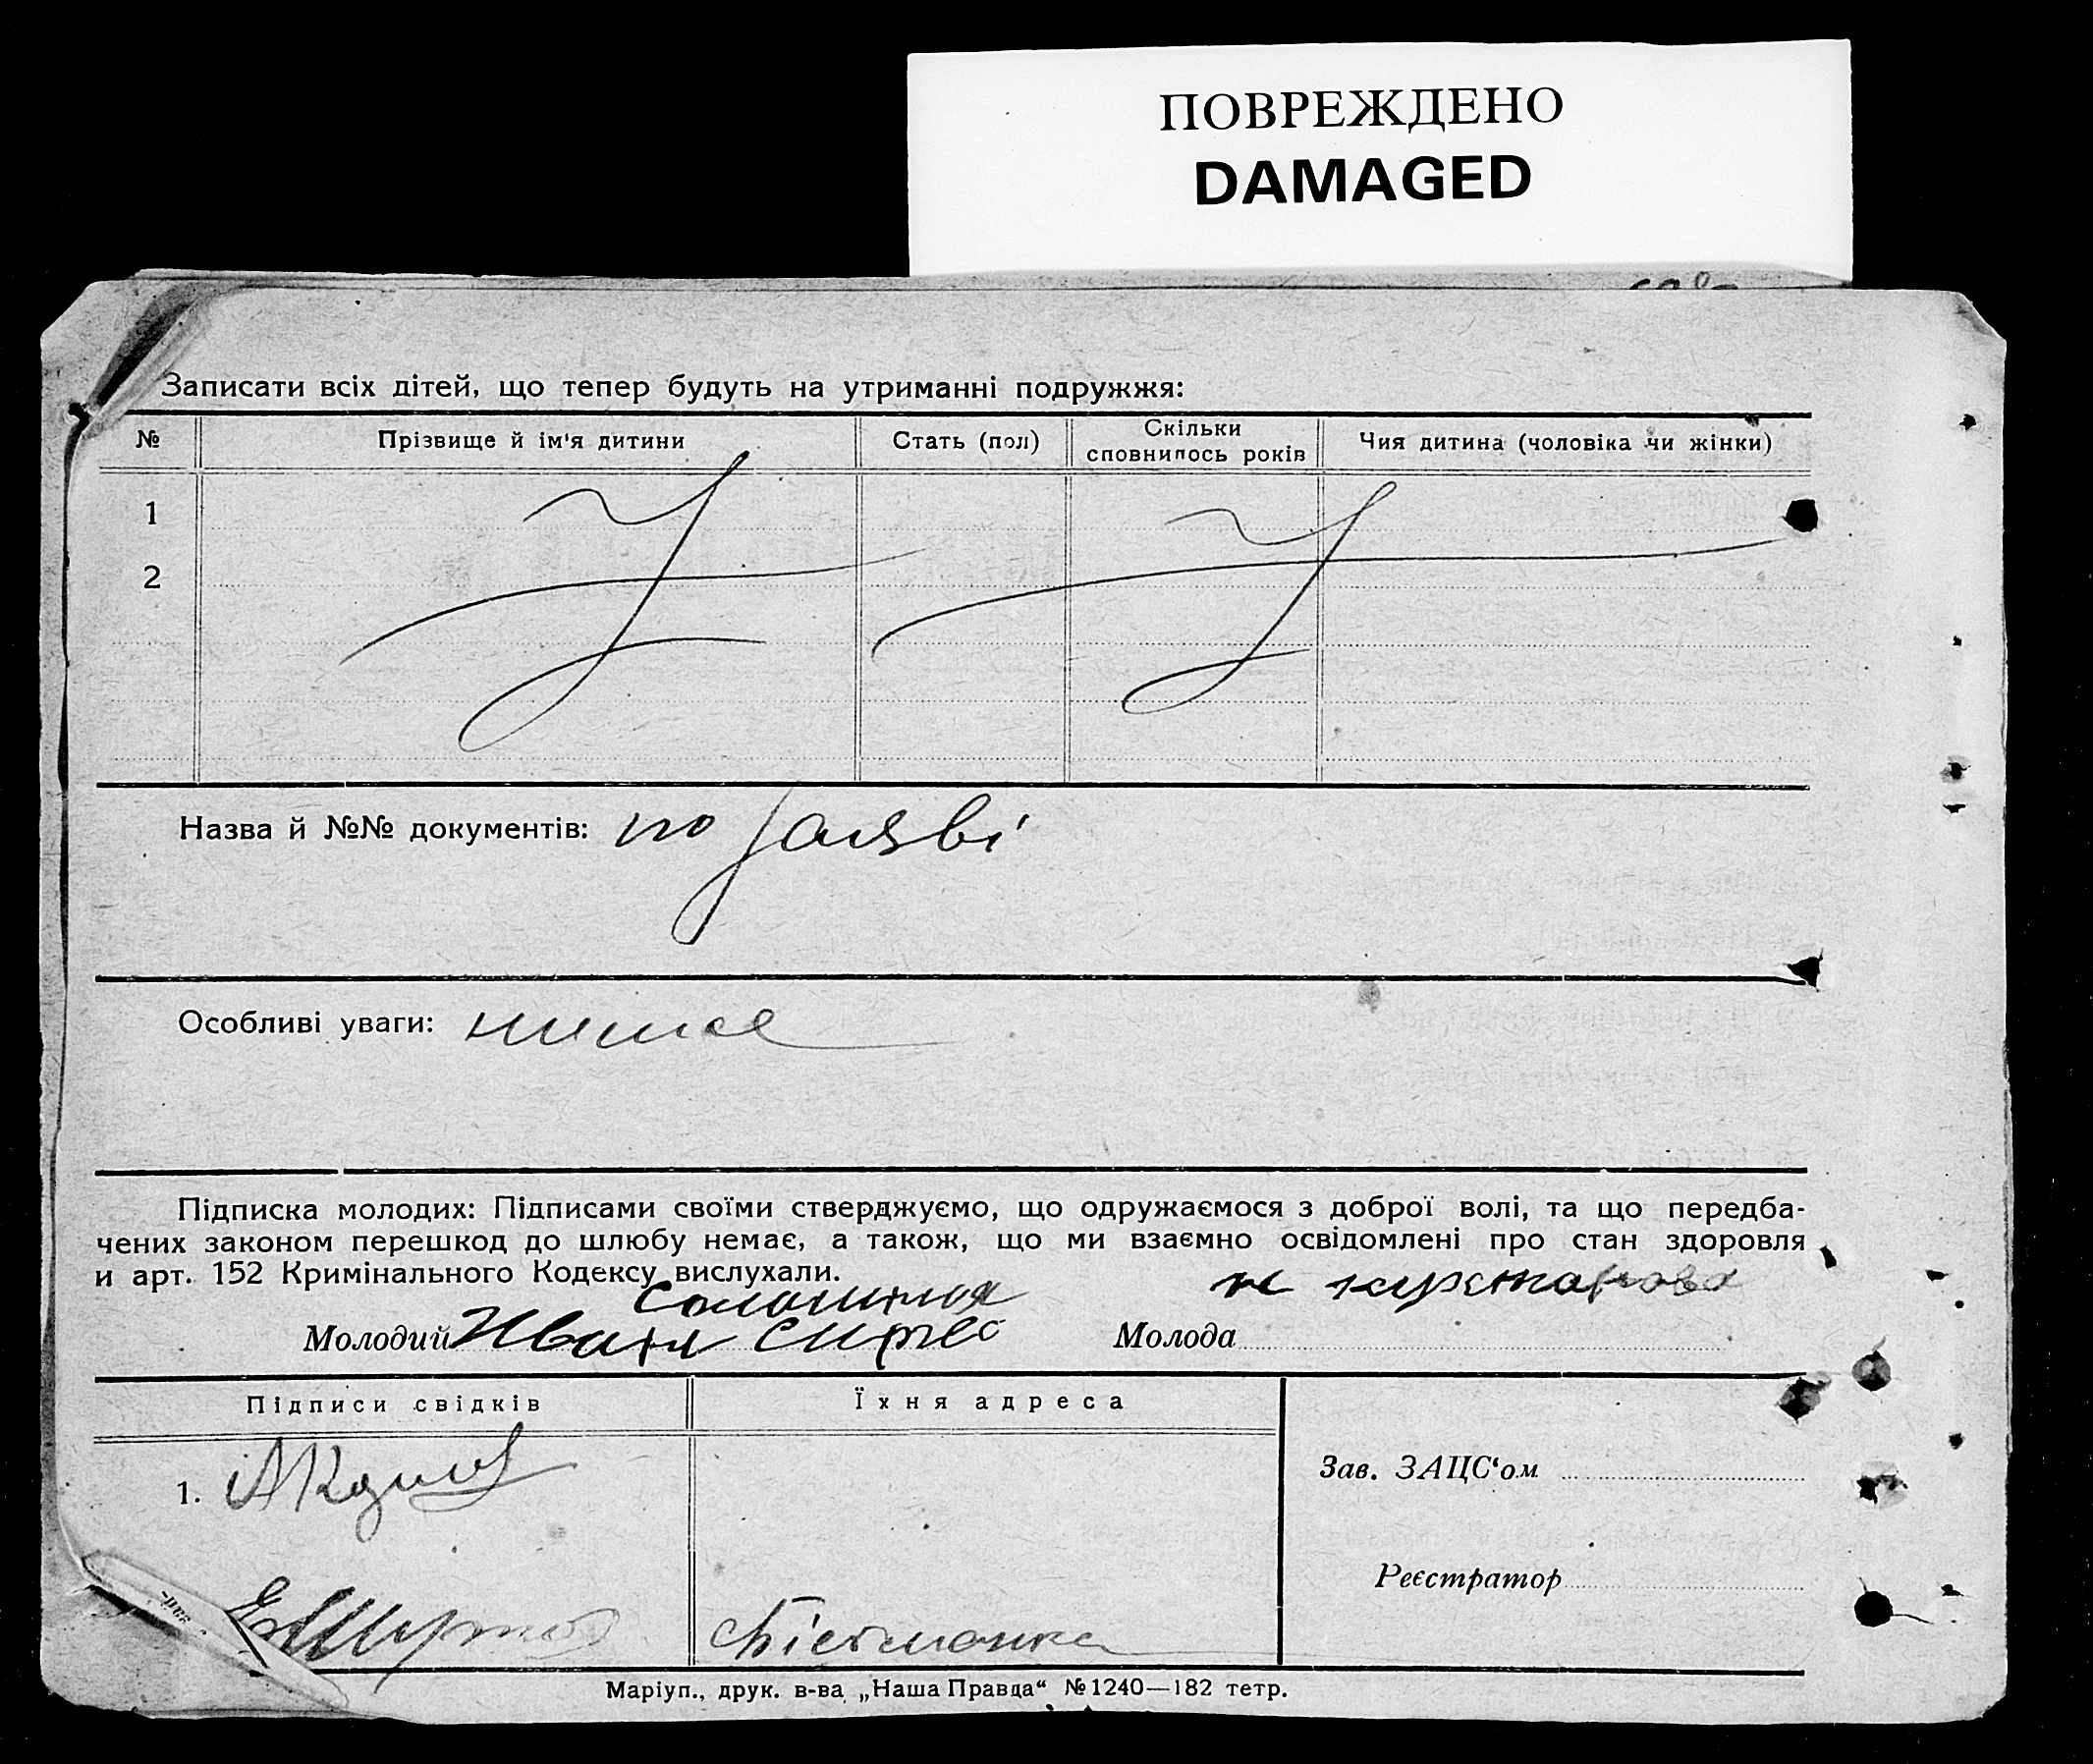 ПОВРЕЖДЕНО
DAMAGED
Записати всіх дітей, що тепер будуть на утриманні подружжя:
№ Прізвище й ім'я дитини Стать (пол) Скільки сповнилось років Чия дитина (чоловіка чи жінки)
1
2
Назва й №№ документів: по заяві
Особливі уваги: нема
Підписка молодих: Підписами своїми стверджуємо, що одружаємося з доброї волі, та що передба-
чених законом перешкод до шлюбу немає, а також, що ми взаємно освідомлені про стан здоровля
и арт. 152 Кримінального Кодексу вислухали.
Молодий Иван
Молода
Підписи свідків Їхня адреса
1.
Зав. ЗАЦС‘ом
Реєстратор
Маріуп., друк. в-ва „Наша Правда“ №1240—182 тетр.